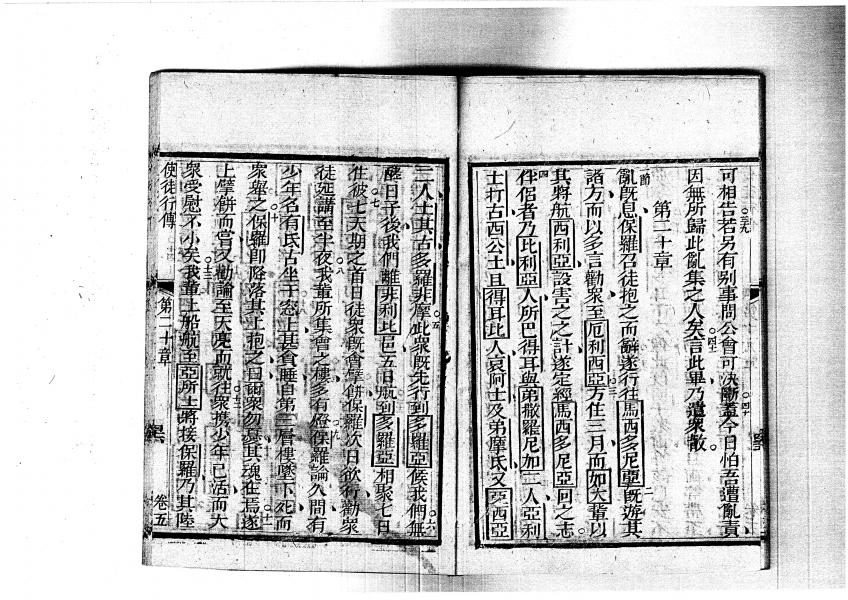 可相告若另有别事問公會可決斷蓋今日怕吾遭亂責
因無所歸此亂集之人矣言此畢乃遣衆散
第二十章
亂既息保羅召徒抱之而辭遂行往馬西多尼亞既遊其
諸方而以多言勸衆至厄利西亞方住三月而如大輩以
其將航西利亞設害之之計遂定經馬西多尼亞囘之志
伴侶者乃比利亞人所巴得耳與弟撒羅尼加二人亞利
士打古西公土且得耳比人哀阿士及弟摩氐又亞西亞
三人士其古多羅非摩此衆既先行到多羅亞候我們無
酵日子後我們離非利比邑五日航到多羅亞相聚七日
在彼七天期之首日徒衆既會擘餅保羅次日欲行勸衆
徒延講至半夜我輩所集會之樓多有燈保羅論久間有
少年名有氐古坐于窓上甚貪睡自第三層樓墜下死而
衆舉之保羅即降落其上抱之曰爾衆勿憂其魂在焉遂
上擘餅而嘗又勸論至天亮而就往衆携少年已活而大
衆受慰不小矣我輩上船航至亞所士將接保羅乃其陸
使徒行傳
第二十章
卷五